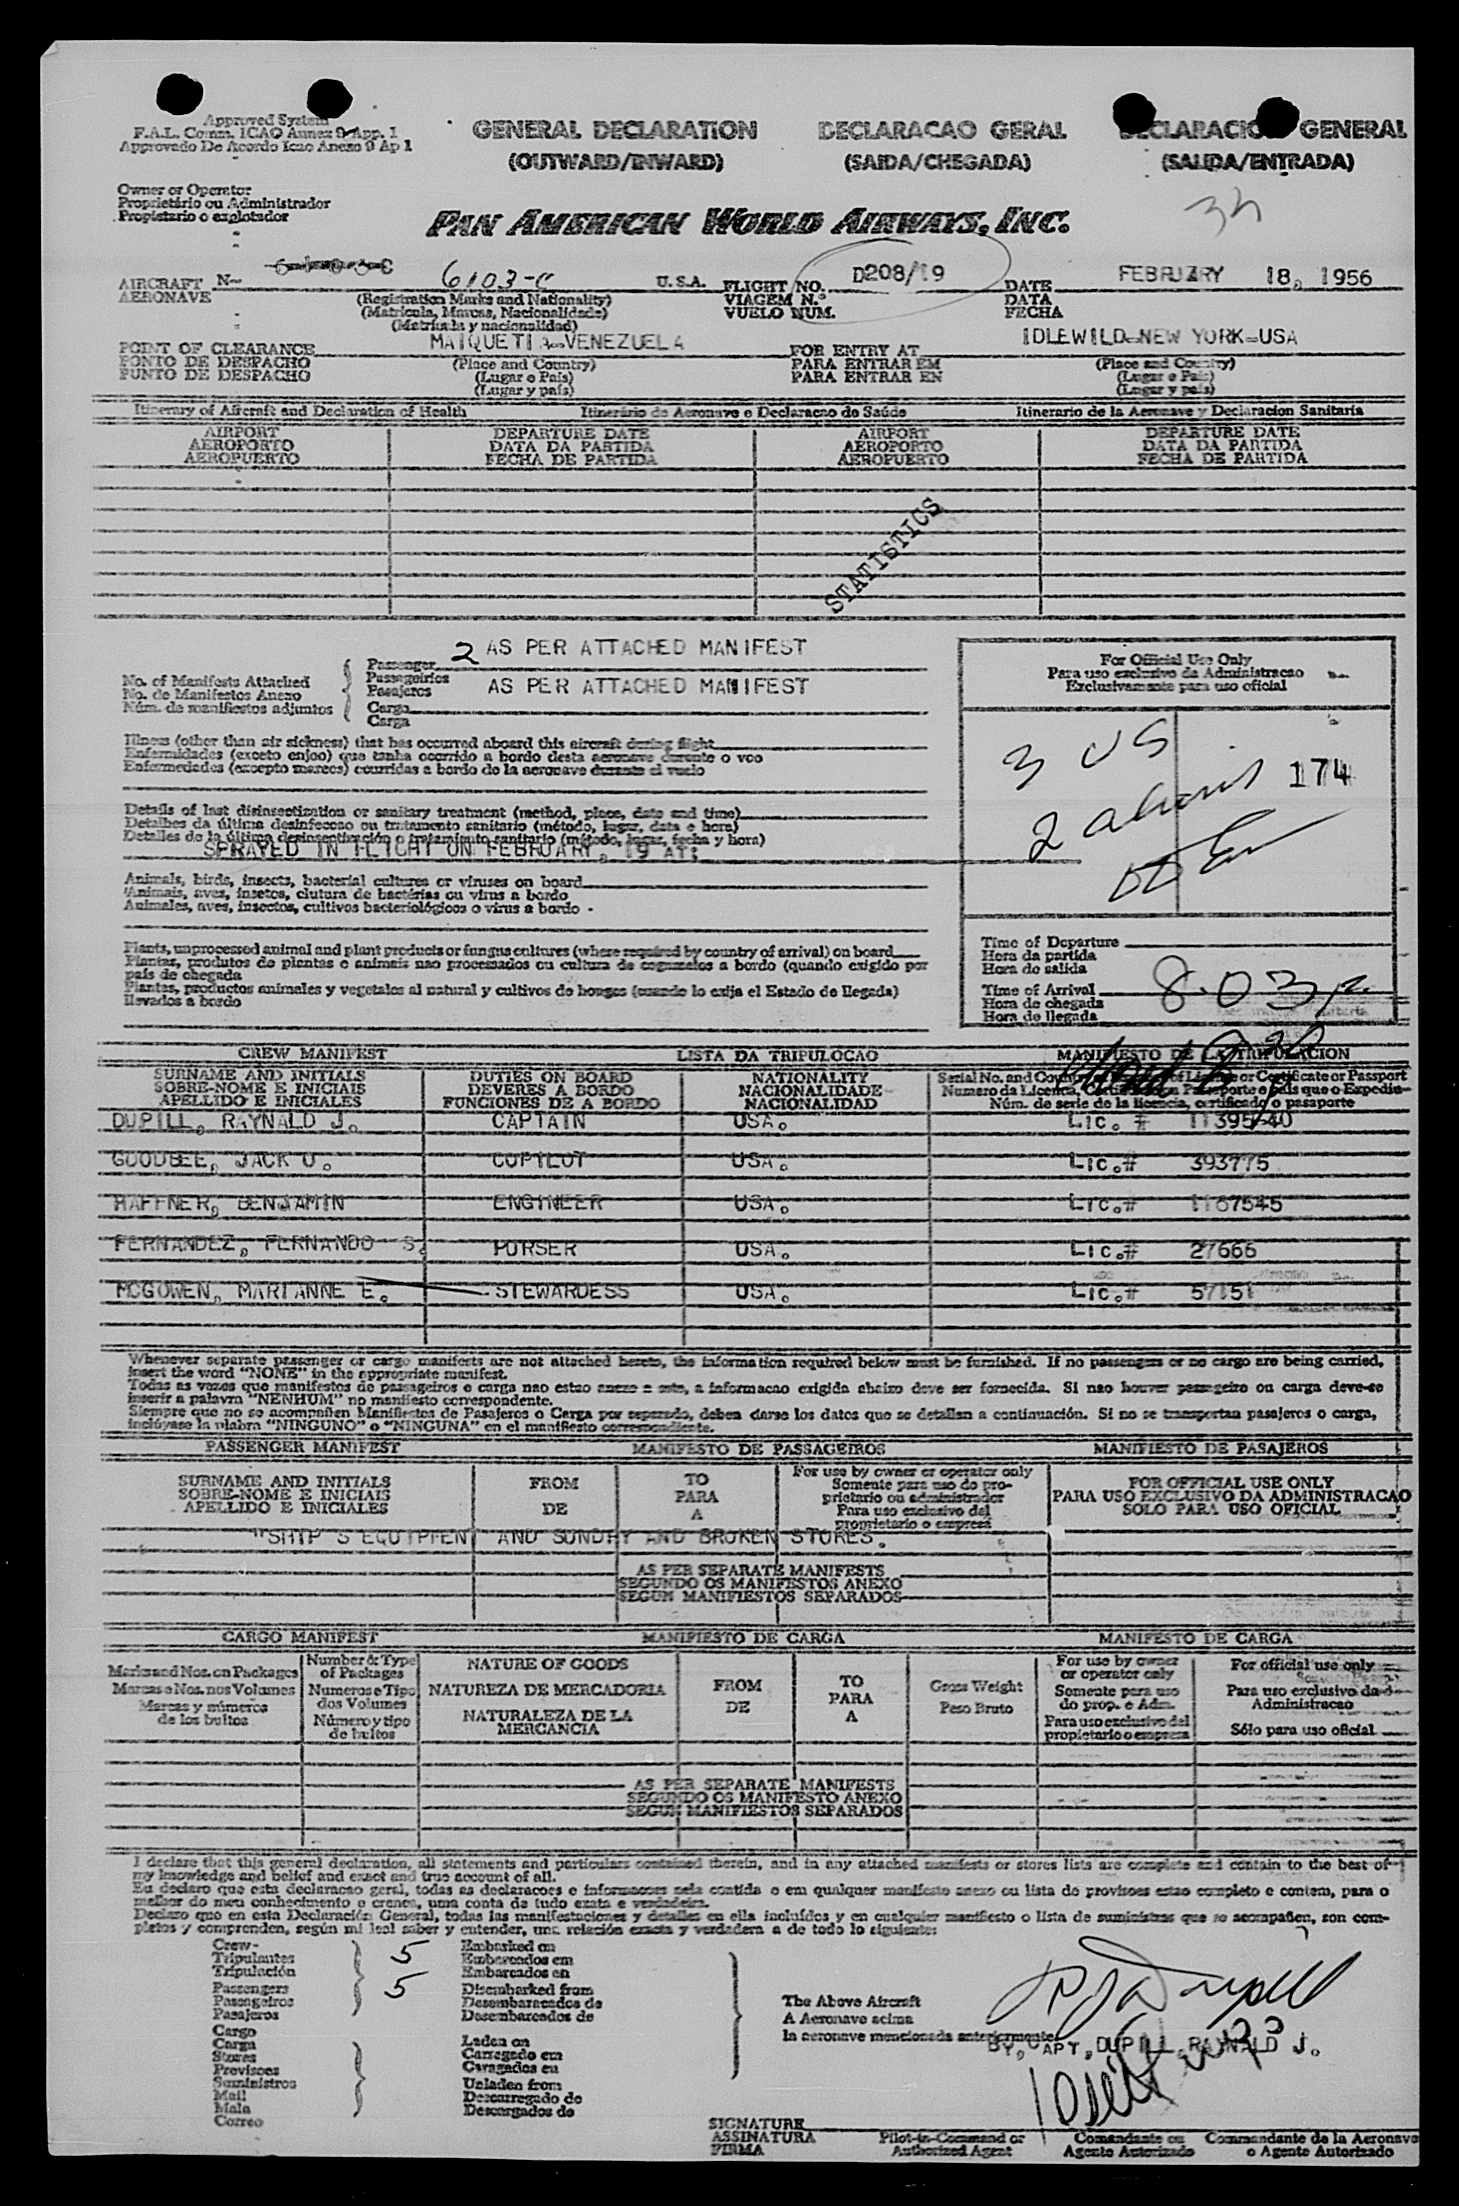 Approved System
F.A.L. Comm. ICAO Annex 9-App. 1
Approvado De Acordo Icao Anexo 9 Ap 1
GENERAL DECLARATION
(OUTWARD/INWARD)
DECLARACAO GERAL
(SAIDA/CHEGADA)
DECLARACION GENERAL
(SALIDA/ENTRADA)
Owner or Operator
Proprietário ou Administrador
Propietario o explotador
PAN AMERICAN WORLD AIRWAYS, INC.
AIRCRAFT N- 6103-C U.S.A.
AERONAVE
(Registration Marks and Nationality)
(Matricula, Marcas, Nacionalidade)
(Matricula y nacionalidad)
FLIGHT NO. D208/19
VIAGEM N.º
VUELO NUM.
DATE FEBRUARY 18, 1956
DATA
FECHA
POINT OF CLEARANCE MAIQUETIA-VENEZUELA
PONTO DE DESPACHO
PUNTO DE DESPACHO
(Place and Country)
(Lugar e País)
(Lugar y país)
FOR ENTRY AT IDLEWILD-NEW YORK-USA
PARA ENTRAR EM
PARA ENTRAR EN
(Place and Country)
(Lugar e País)
(Lugar y país)
Itinerary of Aircraft and Declaration of Health Itinerário da Aeronave e Declaracao de Saúde Itinerario de la Aeronave y Declaracion Sanitaria
AIRPORT DEPARTURE DATE AIRPORT DEPARTURE DATE
AEROPORTO DATA DA PARTIDA AEROPORTO DATA DA PARTIDA
AEROPUERTO FECHA DE PARTIDA AEROPUERTO FECHA DE PARTIDA
STATISTICS
No. of Manifests Attached
No. de Manifestos Anexo
Núm. de manifiestos adjuntos
Passenger 2 AS PER ATTACHED MANIFEST
Passageiros
Pasajeros
Cargo AS PER ATTACHED MANIFEST
Carga
For Official Use Only
Para uso exclusivo da Administracao
Exclusivamente para uso oficial
3 US
2 aliens
174
Illness (other than air sickness) that has occurred aboard this aircraft during flight
Enfermidades (exceto enjoo) que tenha ocorrido a bordo desta aeronave durante o voo
Enfermedades (excepto mareos) ocurridas a bordo de la aeronave durante el vuelo
Details of last disinsectization or sanitary treatment (method, place, date and time)
Detalhes da última desinfeccao ou tratamento sanitario (método, lugar, data e hora)
Detalles de la última desinsectización o tratamiento sanitario (método, lugar, fecha y hora)
SPRAYED IN FLIGHT ON FEBRUARY, 19 AT:
Animals, birds, insects, bacterial cultures or viruses on board
Animais, aves, insetos, clutura de bactérias ou virus a bordo
Animales, aves, insectos, cultivos bacteriológicos o virus a bordo
Plants, unprocessed animal and plant products or fungus cultures (where required by country of arrival) on board
Plantas, produtos de plantas e animais nao processados ou cultura de cogumelos a bordo (quando exigido por
país de chegada
Plantas, productos animales y vegetales al natural y cultivos de hongos (cuando lo exija el Estado de llegada)
llevados a bordo
Time of Departure
Hora da partida
Hora de salida
Time of Arrival 8:03 p.
Hora de chegada
Hora de llegada
CREW MANIFEST LISTA DA TRIPULOCAO MANIFIESTO DE LA TRIPULACION
SURNAME AND INITIALS DUTIES ON BOARD NATIONALITY
SOBRE-NOME E INICIAIS DEVERES A BORDO NACIONALIDADE
APELLIDO E INICIALES FUNCIONES DE A BORDO NACIONALIDAD
Núm. de serie de la licencia, certificado o pasaporte
DUPILL, RAYNALD J. CAPTAIN USA. Lic. # 11395-40
GOODBEE, JACK O. COPILOT USA. Lic.# 393775
HAFFNER, BENJAMIN ENGINEER USA. Lic.# 1167545
FERNANDEZ, FERNANDO S. PURSER USA. Lic.# 27666
MCGOWEN, MARIANNE E. STEWARDESS USA. Lic.# 57151
Whenever separate passenger or cargo manifests are not attached hereto, the information required below must be furnished. If no passengers or no cargo are being carried,
insert the word "NONE" in the appropriate manifest.
Todas as vazes que manifestos de passageiros e carga nao estao anexo a este, a informacao exigida abaixo deve ser fornecida. Si nao houver passageiro ou carga deve-se
inserir a palavra "NENHUM" no manifiesto correspondente.
Siempre que no se acompañen Manifiestos de Pasajeros o Carga por separado, deben darse los datos que se detallan a continuación. Si no se transportan pasajeros o carga,
inclúyase la plabra "NINGUNO" o "NINGUNA" en el manifiesto correspondiente.
PASSENGER MANIFEST MANIFESTO DE PASSAGEIROS MANIFIESTO DE PASAJEROS
SURNAME AND INITIALS
SOBRE-NOME E INICIAIS
APELLIDO E INICIALES
FROM
DE
TO
PARA
A
For use by owner or operator only
Somente para uso do pro-
prietario ou administrador
Para uso exclusivo del
proprietario o empresa
FOR OFFICIAL USE ONLY
PARA USO EXCLUSIVO DA ADMINISTRACAO
SOLO PARA USO OFICIAL
"SHIP'S EQUIPMENT AND SUNDRY AND BROKEN STORES.
AS PER SEPARATE MANIFESTS
SEGUNDO OS MANIFESTOS ANEXO
SEGUN MANIFIESTOS SEPARADOS
CARGO MANIFEST MANIFIESTO DE CARGA MANIFESTO DE CARGA
Marks and Nos. on Packages
Marcas e Nos. nos Volumes
Marcas y números
de los bultos
Number & Type
of Packages
Numeros e Tipo
dos Volumes
Número y tipo
de bultos
NATURE OF GOODS
NATUREZA DE MERCADORIA
NATURALEZA DE LA
MERCANCIA
FROM
DE
TO
PARA
A
Gross Weight
Peso Bruto
For use by owner
or operator only
Somente para uso
do prop. e Adm.
Para uso exclusivo del
propietario o empresa
For official use only
Para uso exclusivo da
Administracao
Sólo para uso oficial
AS PER SEPARATE MANIFESTS
SEGUNDO OS MANIFESTO ANEXO
SEGUN MANIFIESTOS SEPARADOS
I declare that this general declaration, all statements and particulars contained therein, and in any attached manifests or stores lists are complete and contain to the best of
my knowledge and belief and exact and true account of all.
Eu declaro que esta declaracao geral, todas as declaracoes e informacoes nela contida e em qualquer manifesto anexo ou lista de provisoes estao completo e contem, para o
melhor do meu conhecimento e crenca, uma conta de tudo exata e verdadeira.
Declaro que en esta Declaración General, todas las manifestaciones y detalles en ella incluídos y en cualquier manifiesto o lista de suministros que se acompañen, son com-
pletos y comprenden, según mi leal saber y entender, una relación exacta y verdadera a de todo lo siguiente:
Crew- 5
Tripulantes
Tripulación
Passengers 5
Passageiros
Pasajeros
Cargo
Carga
Stores
Provisoes
Suministros
Mail
Mala
Correo
Embarked on
Embarcados em
Embarcados en
Disembarked from
Desembaracados de
Desembarcados de
Laden on
Carregado em
Cargados en
Unladen from
Descarregado de
Descargados de
The Above Aircraft
A Aeronave acima
la aeronave mencionada anteriormente
BY, CAPT, DUPILL, RAYNALD J.
SIGNATURE
ASSINATURA
FIRMA
Pilot-in-Command or
Authorized Agent
Comandante ou
Agente Autorizado
Commandante de la Aeronave
o Agente Autorizado